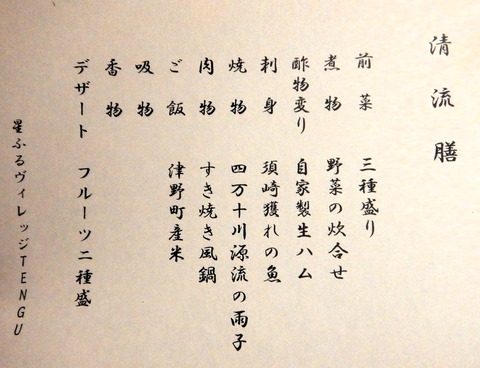 清流膳
前菜 三種盛り
煮物 野菜の炊合せ
酢物変り 自家製生ハム
刺身 須崎獲れの魚
焼物 四万十川源流の雨子
肉物 すき焼き風鍋
ご飯 津野町産米
吸物
香物
デザート フルーツ二種盛
星ふるヴィレッジTENGU